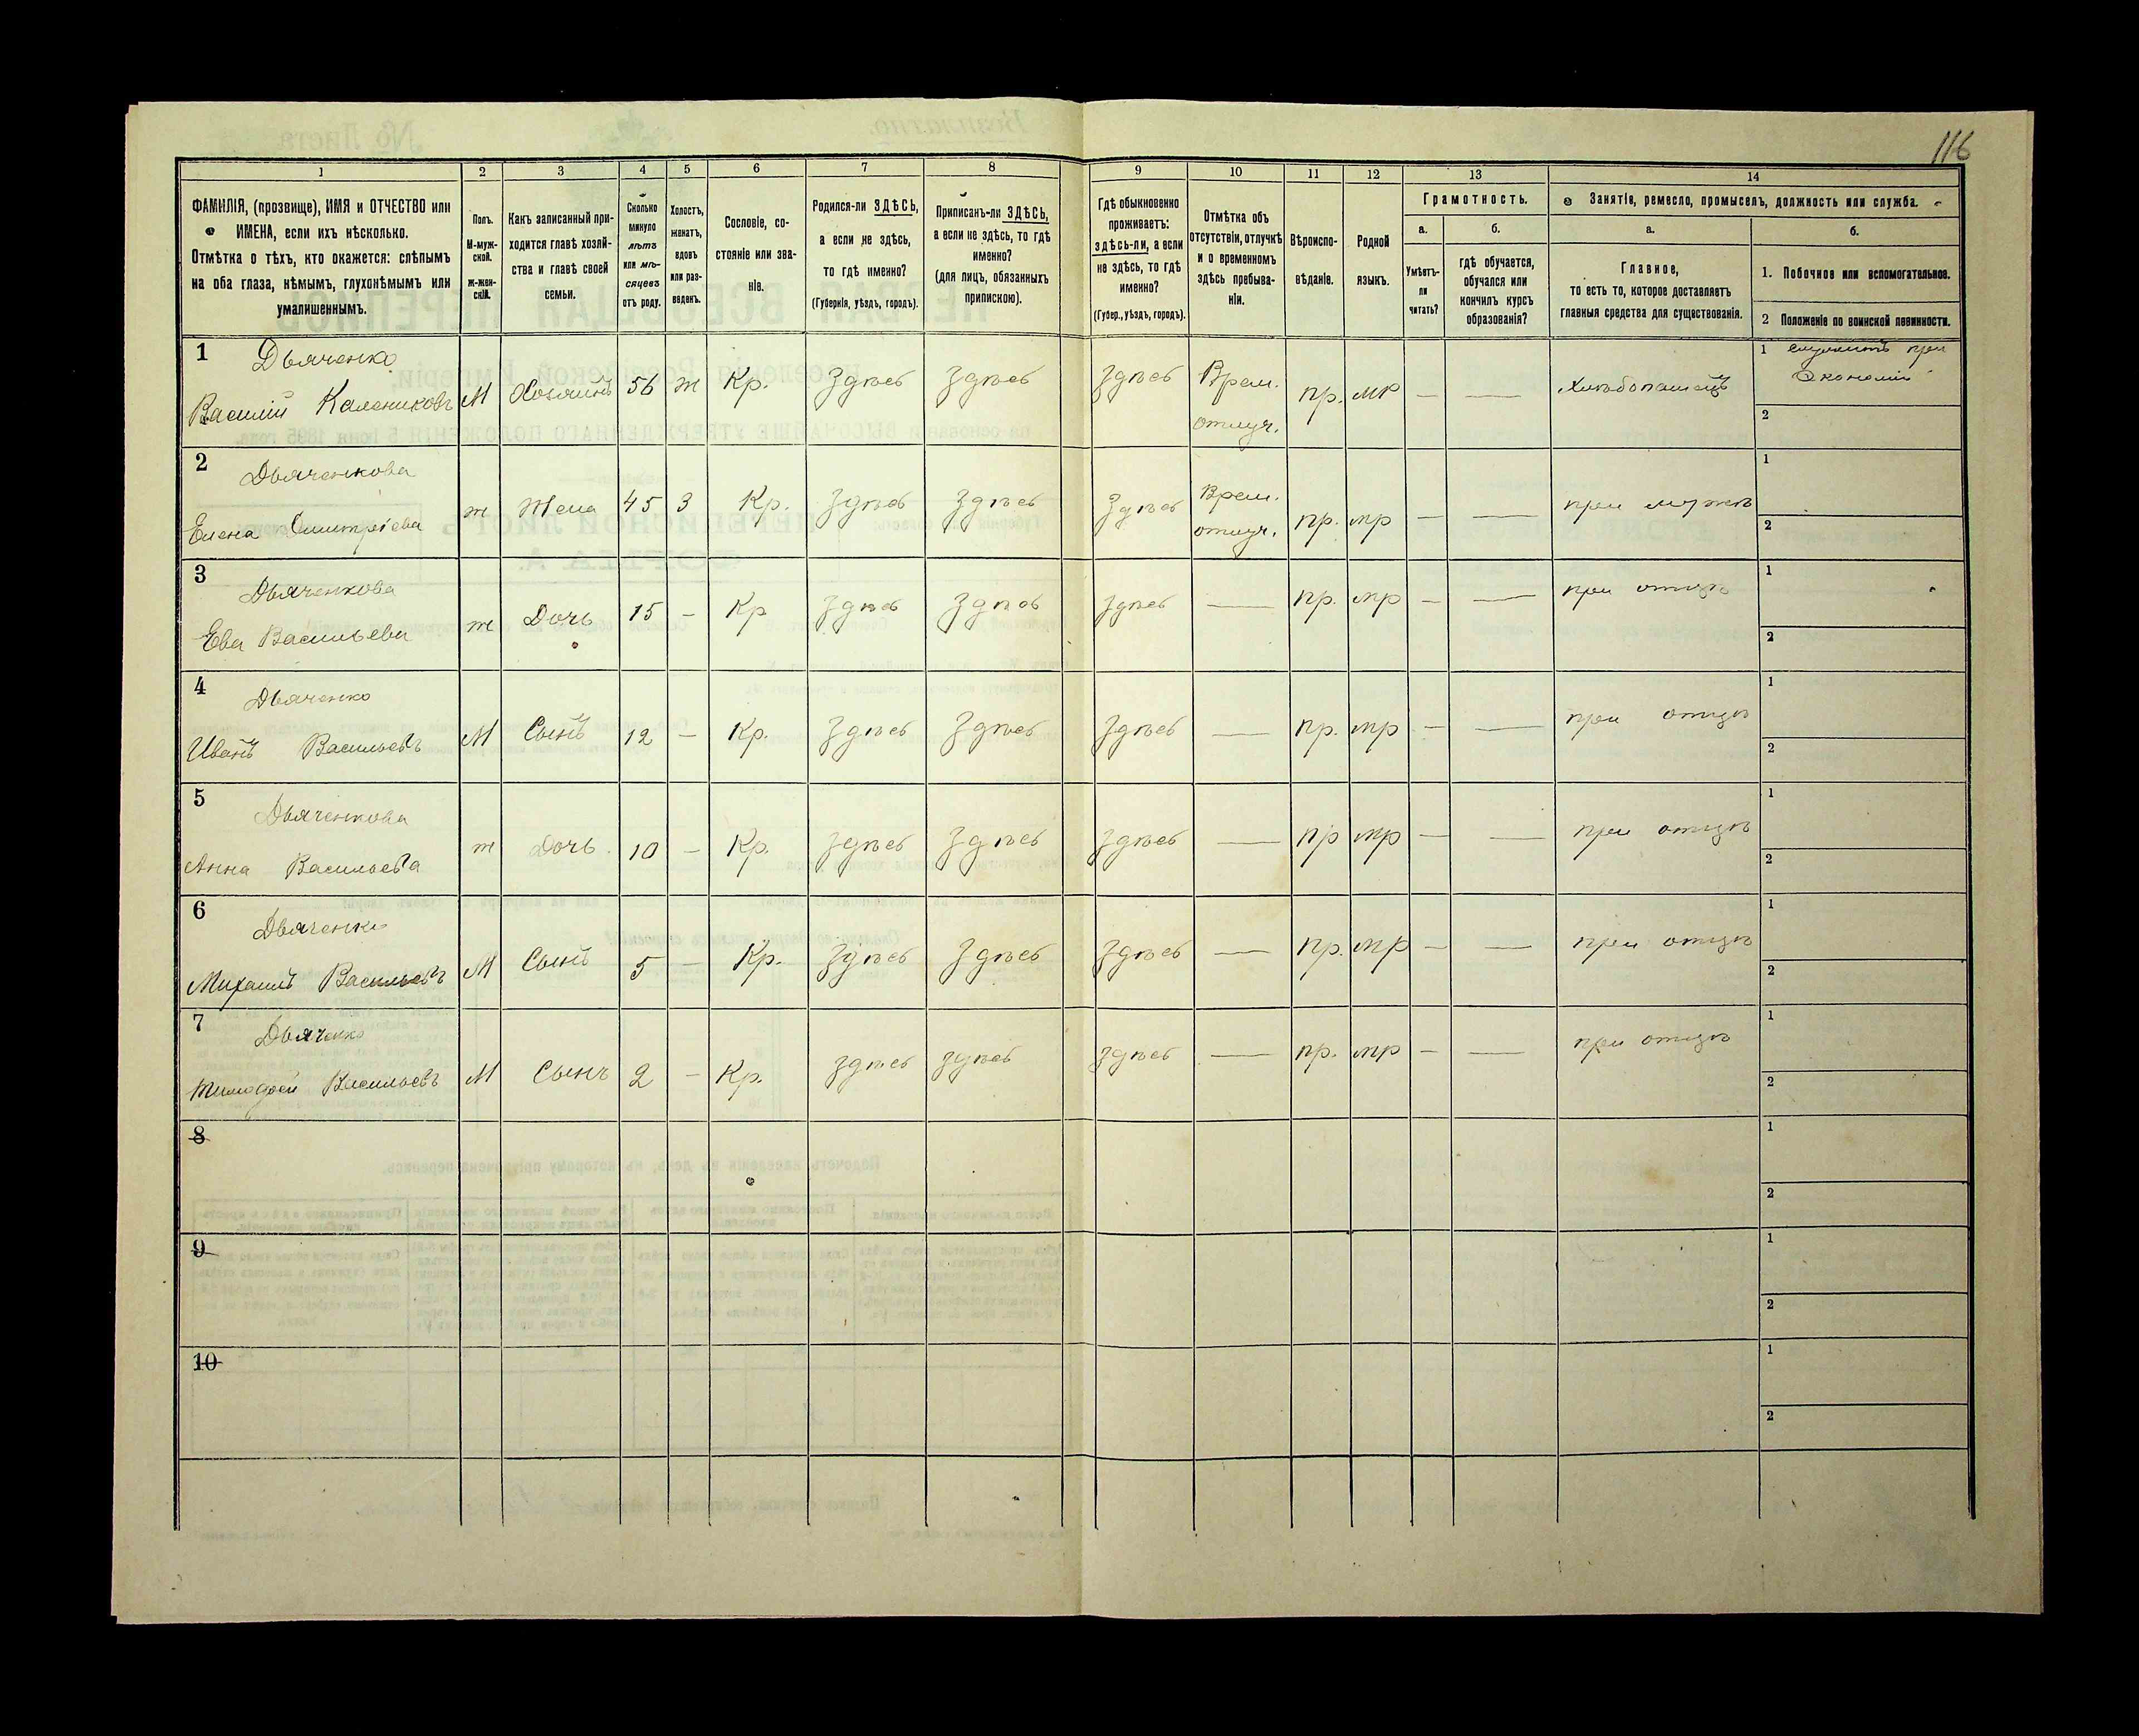 116
1
2
3
4
5
6
7
8
9
10
11
12
13
14
ФАМИЛІЯ, (прозвище), ИМЯ и ОТЧЕСТВО или
ИМЕНА, если ихъ нѣсколько.
Отмѣтка о тѣхъ, кто окажется: слѣпымъ
на оба глаза, нѣмымъ, глухонѣмымъ или
умалишеннымъ.
Полъ.
М-муж-
ской.
ж-жен-
скій.
Какъ записанный при-
ходится главѣ хозяй-
ства и главѣ своей
семьи.
Сколько
минуло
лѣтъ
или мѣ-
сяцевъ
отъ роду.
Холостъ,
женатъ,
вдовъ
или раз-
веденъ.
Сословіе, со-
стояніе или зва-
ніе.
Родился-ли ЗДѢСЬ,
а если не здѣсь,
то гдѣ именно?
(Губернія, уѣздъ, городъ).
Приписанъ-ли ЗДѢСЬ,
а если не здѣсь, то гдѣ
именно?
(для лицъ, обязанныхъ
припискою).
Гдѣ обыкновенно
проживаетъ:
здѣсь-ли, а если
не здѣсь, то гдѣ
именно?
(Губер., уѣздъ, городъ).
Отмѣтка объ
отсутствіи, отлучкѣ
и о временномъ
здѣсь пребыва-
ніи.
Вѣроиспо-
вѣданіе.
Родной
языкъ.
Грамотность.
а.
Умѣетъ-
ли
читать?
б.
гдѣ обучается,
обучался или
кончилъ курсъ
образованія?
Занятіе, ремесло, промыселъ, должность или служба.
а.
Главное,
то есть то, которое доставляетъ
главныя средства для существованія.
б.
1. Побочное или вспомогательное.
2 Положеніе по воинской повинности.
1 Дьяченко
Василій Калениковъ М Хозяинъ 56 ж Кр. Здѣсь Здѣсь Здѣсь Врем. отлуч. пр. мр — — Хлѣбопашецъ
1 служитъ при
Экономіи
2
2 Дьяченкова
Елена Дмитріева ж Жена 45 З Кр. Здѣсь Здѣсь Здѣсь Врем. отлуч. пр. мр — — при мужѣ
1
2
3 Дьяченкова
Ева Васильева ж Дочь 15 — Кр Здѣсь Здѣсь Здѣсь — пр. мр — — при отцѣ
1
2
4 Дьяченко
Иванъ Васильевъ М Сынъ 12 — Кр. Здѣсь Здѣсь Здѣсь — пр. мр — — при отцѣ
1
2
5 Дьяченкова
Анна Васильева ж Дочь 10 — Кр. Здѣсь Здѣсь Здѣсь — пр мр — — при отцѣ
1
2
6 Дьяченко
Михаилъ Васильевъ М Сынъ 5 — Кр. Здѣсь Здѣсь Здѣсь — пр. мр — — при отцѣ
1
2
7 Дьяченко
Тимофей Васильевъ М Сынъ 2 — Кр. Здѣсь Здѣсь Здѣсь — пр. мр — — при отцѣ
1
2
8
1
2
9
1
2
10
1
2